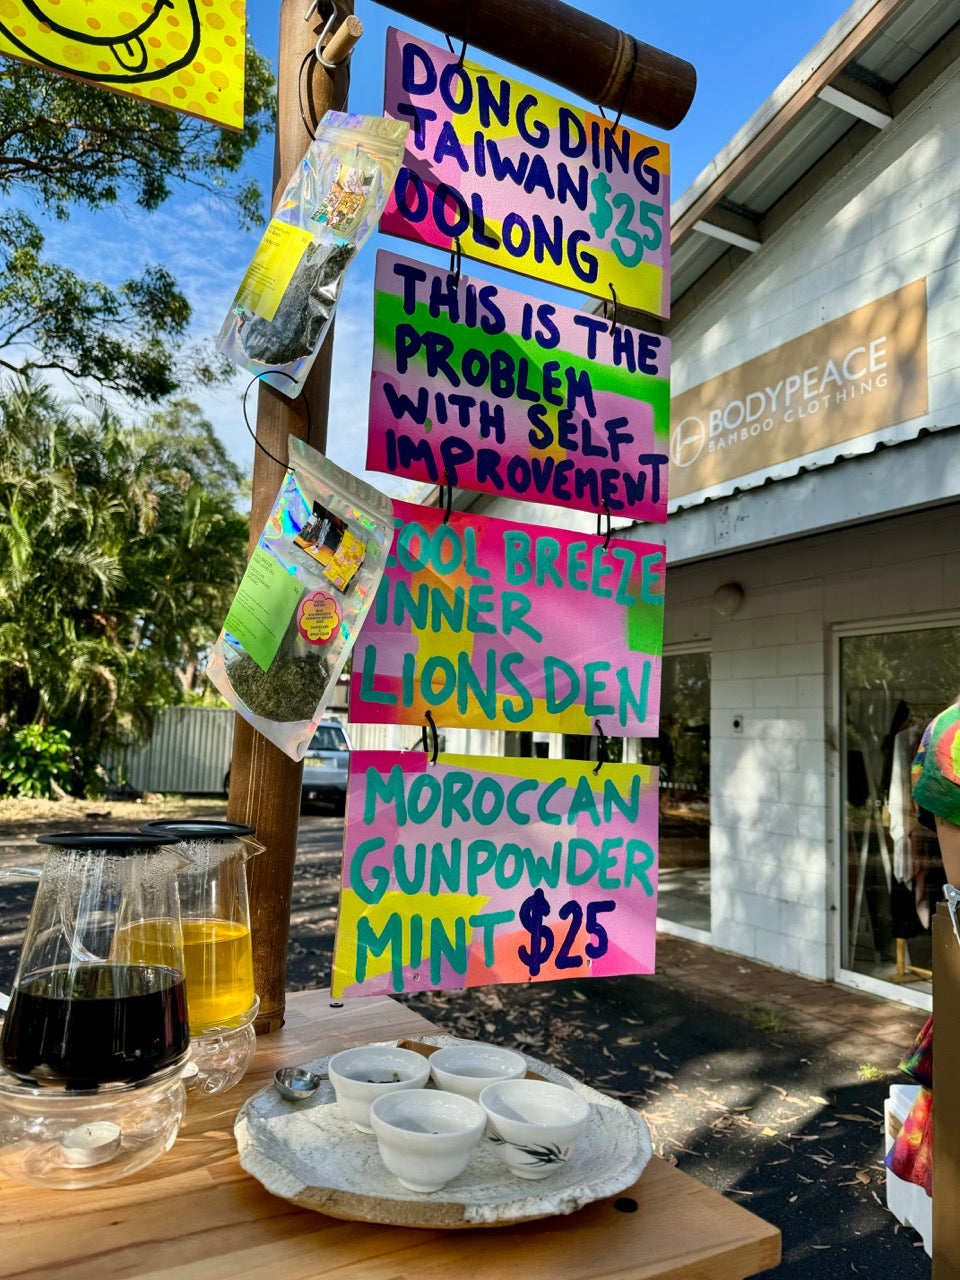 DONG DING
TAIWAN $35
OOLONG
THIS IS THE
PROBLEM
WITH SELF
IMPROVEMENT
COOL BREEZE
INNER
LIONS DEN
MOROCCAN
GUNPOWDER
MINT $25
BODYPEACE
BAMBOO CLOTHING